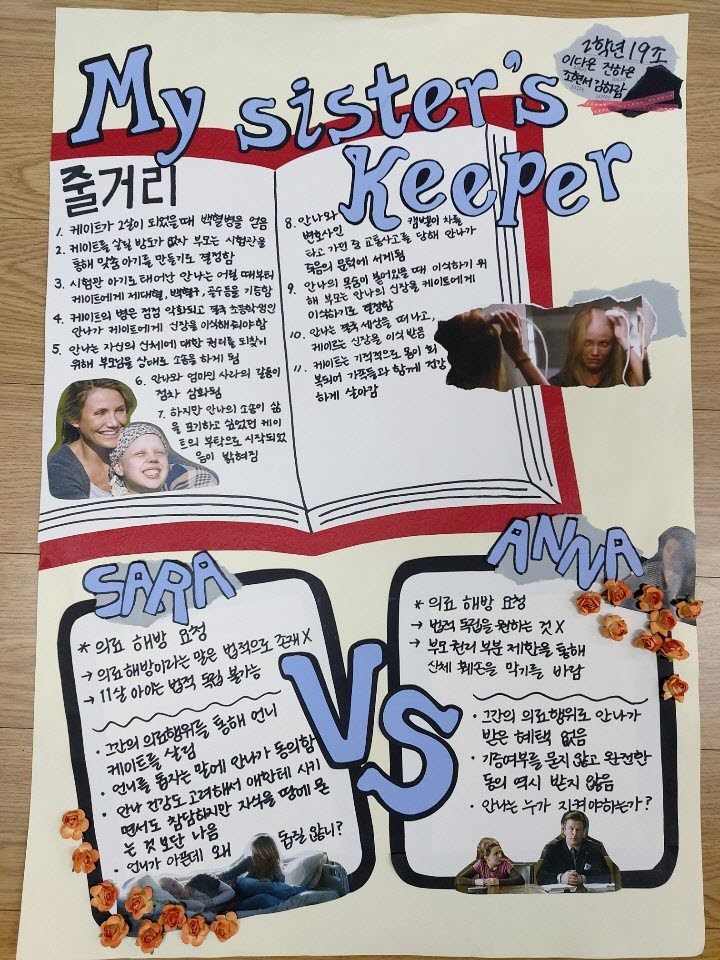 My sister's
Keeper
2학년 19조
이다은 전하은
조현서 김하람
줄거리
1. 케이트가 2살이 되었을 때 백혈병을 얻음
2. 케이트를 살릴 방도가 없자 부모는 시험관을
통해 맞춤 아기를 만들기로 결정함
3. 시험관 아기로 태어난 안나는 어릴 때부터
케이트에게 제대혈, 백혈구, 골수등을 기증함
4. 케이트의 병은 점점 악화되고 결국 초등학생인
안나가 케이트에게 신장을 이식해줘야 함
5. 안나는 자신의 신체에 대한 권리를 되찾기
위해 부모님을 상대로 소송을 하게 됨
6. 안나와 엄마인 사라의 갈등이
점차 심화됨
7. 하지만 안나의 소송이 삶
을 포기하고 싶었던 케이
트의 부탁으로 시작되었
음이 밝혀짐
8. 안나와
변호사인 캠벨이 차를
타고 가던 중 교통사고를 당해 안나가
죽음의 문턱에 서게됨
9. 안나의 목숨이 붙어있을 때 이식하기 위
해 부모는 안나의 신장을 케이트에게
이식하기로 결정함
10. 안나는 결국 세상을 떠나고,
케이트는 신장을 이식 받음
11. 케이트는 기적적으로 몸이 회
복되어 가족들과 함께 건강
하게 살아감
SARA
* 의료 해방 요청
→ 의료해방이라는 말은 법적으로 존재 X
→ 11살 아이는 법적 독립 불가능
• 그간의 의료행위를 통해 언니
케이트를 살림
• 언니를 돕자는 말에 안나가 동의함
• 안나 건강도 고려해서 애한테 시키
면서도 참담하지만 자식을 땅에 묻
는 것 보단 나음
• 언니가 아픈데 왜 돕질 않니?
VS
ANNA
* 의료 해방 요청
→ 법적 독립을 원하는 것 X
→ 부모 권리 부분 제한을 통해
신체 훼손을 막기를 바람
• 그간의 의료행위로 안나가
받은 혜택 없음
• 기증여부를 묻지 않고 완전한
동의 역시 받지 않음
• 안나는 누가 지켜야하는가?